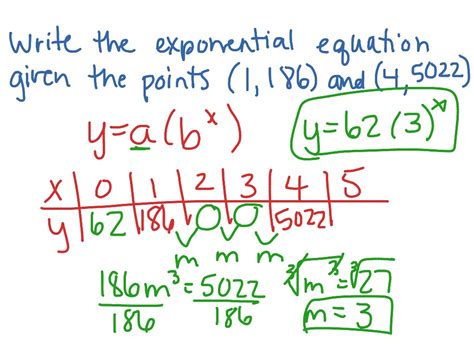 Write the exponential equation
given the points (1,186) and (4,5022)
y=a(b^x)
y=62(3)^x
x | 0 | 1 | 2 | 3 | 4 | 5
y | 62 | 186 | O | O | 5022
m m m
186m³ = 5022
186 186
∛m³ = ∛27
m = 3